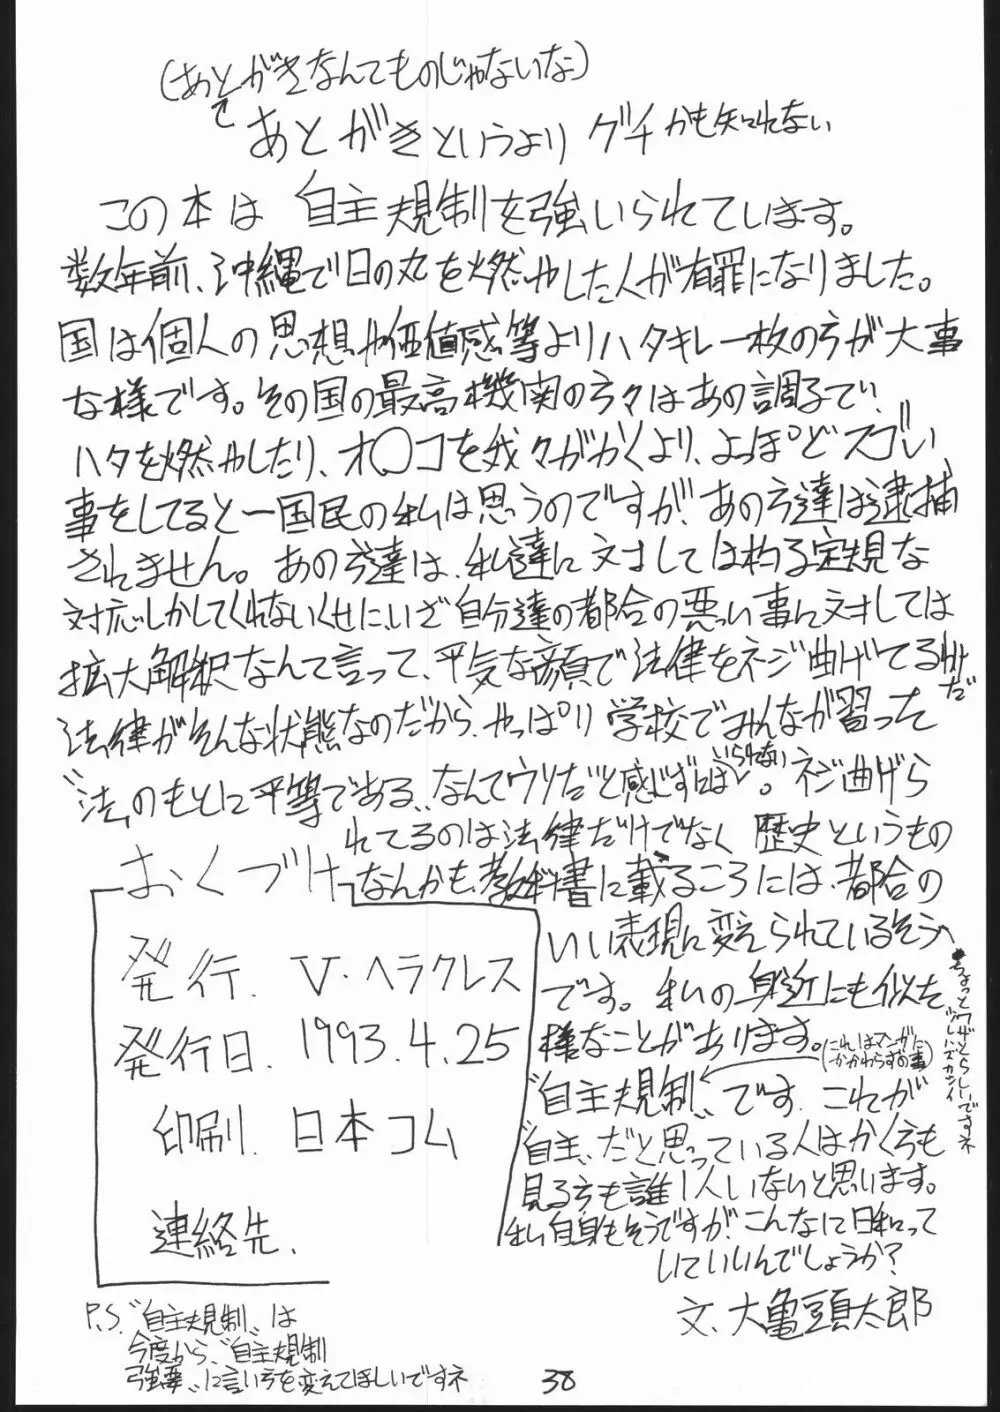 (あとがきなんてものじゃないな)
あとがきというよりグチかも知れない
この本は自主規制を強いられています。
数年前、沖縄で日の丸を燃やした人が有罪になりました。
国は個人の思想や価値感等よりハタキレ一枚の方が大事
な様です。その国の最高機関の方々はあの調子で、
ハタを燃やしたり、オ〇コを我々がかくより、よっぽどスゴい
事をしてると一国民の私は思うのですが、あの方達は逮捕
されません。あの方達は、私達に対しては杓子定規な
対応しかしてくれないくせに、いざ自分達の都合の悪い事に対しては
拡大解釈なんて言って、平気な顔で法律をネジ曲げてるわけだ
法律がそんな状態なのだから、やっぱり学校でみんなが習った
〝法のもとに平等である〟なんてウソだと感じずにはいられない。ネジ曲げら
れてるのは法律だけでなく歴史というもの
なんかも、教科書に載るころには、都合の
いい表現に変えられているそう
です。私の身近にも似た
様なことがあります。
(これはマンガにかかわらずの事)
ちょっとワザとらしいですネ
〝自主規制〟です。これが
〝自主〟だと思っている人はかく方も
見る方も誰1人いないと思います。
私自身もそうですが、こんなに日和って
していいんでしょうか?
文、大亀頭太郎
おくづけ
発行. V・ヘラクレス
発行日. 1993.4.25
印刷. 日本コム
連絡先.
P.S.〝自主規制〟は
今度から、〝自主規制
強要〟に言い方を変えてほしいですネ
38